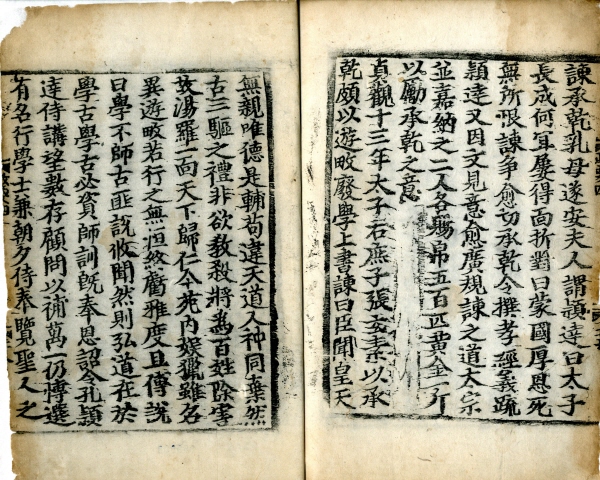 諫承乾乳母遂安夫人謂穎達曰太子
長成何宜屢得面折對曰蒙國厚恩死
無所恨諫爭愈切承乾令撰孝經義疏
穎達又因文見意愈廣規諫之道太宗
並嘉納之二人各賜帛五百匹黃金一斤
以勵承乾之意
貞觀十三年太子右庶子張玄素以承
乾頗以遊畋廢學上書諫曰臣聞皇天
無親唯德是輔苟違天道人神同棄然
古三驅之禮非欲教殺將爲百姓除害
故湯羅一面天下歸仁今苑内娱獵雖名
異遊畋若行之無恒終虧雅度且傳説
曰學不師古匪說攸聞然則弘道在於
學古學古必資師訓既奉恩詔令孔穎
達侍講望數存顧問以補萬一仍博選
有名行學士兼朝夕侍奉覽聖人之